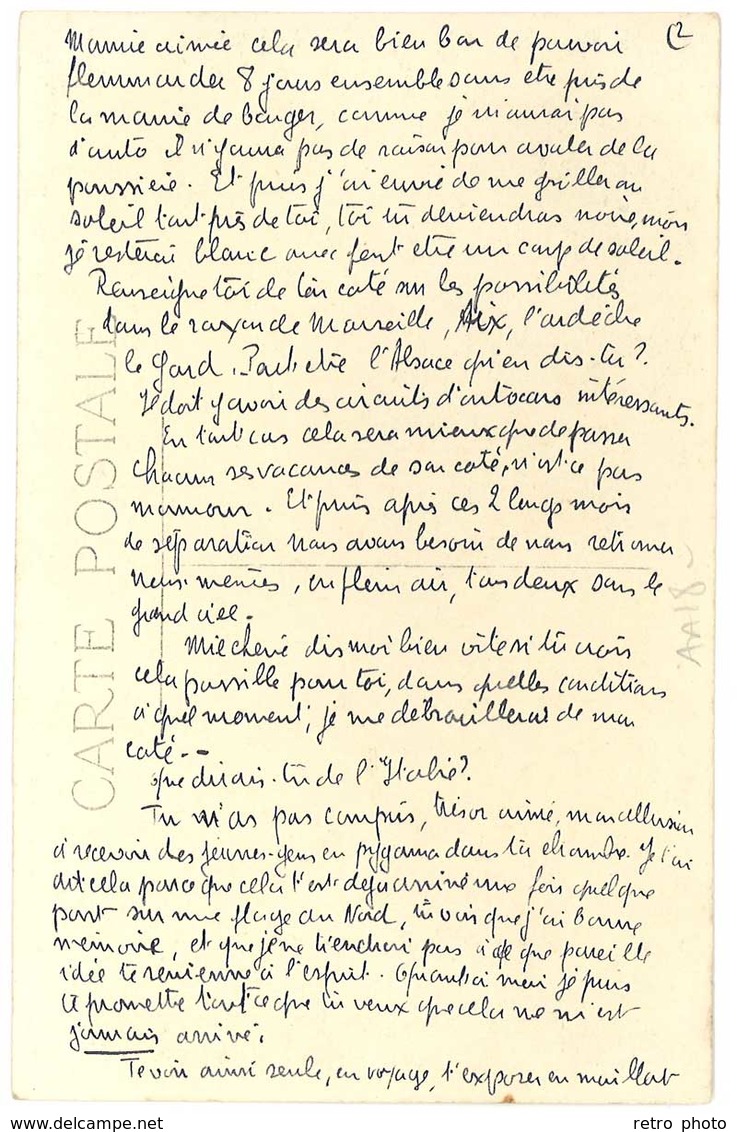 (2
Mamie aimée cela sera bien bon de pouvoir
flemmarder 8 jours ensemble sans être pris de
la manie de bouger, comme je n'aurai pas
d'auto il n'y aura pas de raison pour avaler de la
poussière. Et puis j'ai envie de me griller au
soleil tout près de toi, toi tu deviendras noire, moi
je resterai blanc avec peut etre un coup de soleil.
Renseigne toi de ton coté sur les possibilités
dans le rayon de Marseille, Aix, l'ardèche
le Gard. Peut etre l'Alsace qu'en dis-tu?
Il doit y avoir des circuits d'autocars intéressants.
En tout cas cela sera mieux que de passer
chacun ses vacances de son coté, n'est ce pas
mamour. Et puis après ces 2 longs mois
de séparation nous avons besoin de nous retrouver
nous-mêmes, en plein air, tous deux sous le
grand ciel.
Mie chérie dis moi bien vite si tu crois
cela possible pour toi, dans quelles conditions
à quel moment; je me débrouillerai de mon
coté.--
Que dirais-tu de l'Italie?
Tu n'as pas compris, trésor aimé, mon allusion
à recevoir des jeunes-gens en pygama dans ta chambre. Je t'ai
dit cela parce que cela t'est deja arrivé une fois quelque
part sur une plage du Nord, tu vois que j'ai bonne
mémoire, et que je ne tiendrai pas à ce que pareille
idée te revienne à l'esprit. Quant à moi je puis
te promettre tout ce que tu veux que cela ne m'est
jamais arrivé.
Te voir ainsi seule, en voyage, t'exposer en maillot
CARTE POSTALE
AA18
retro photo